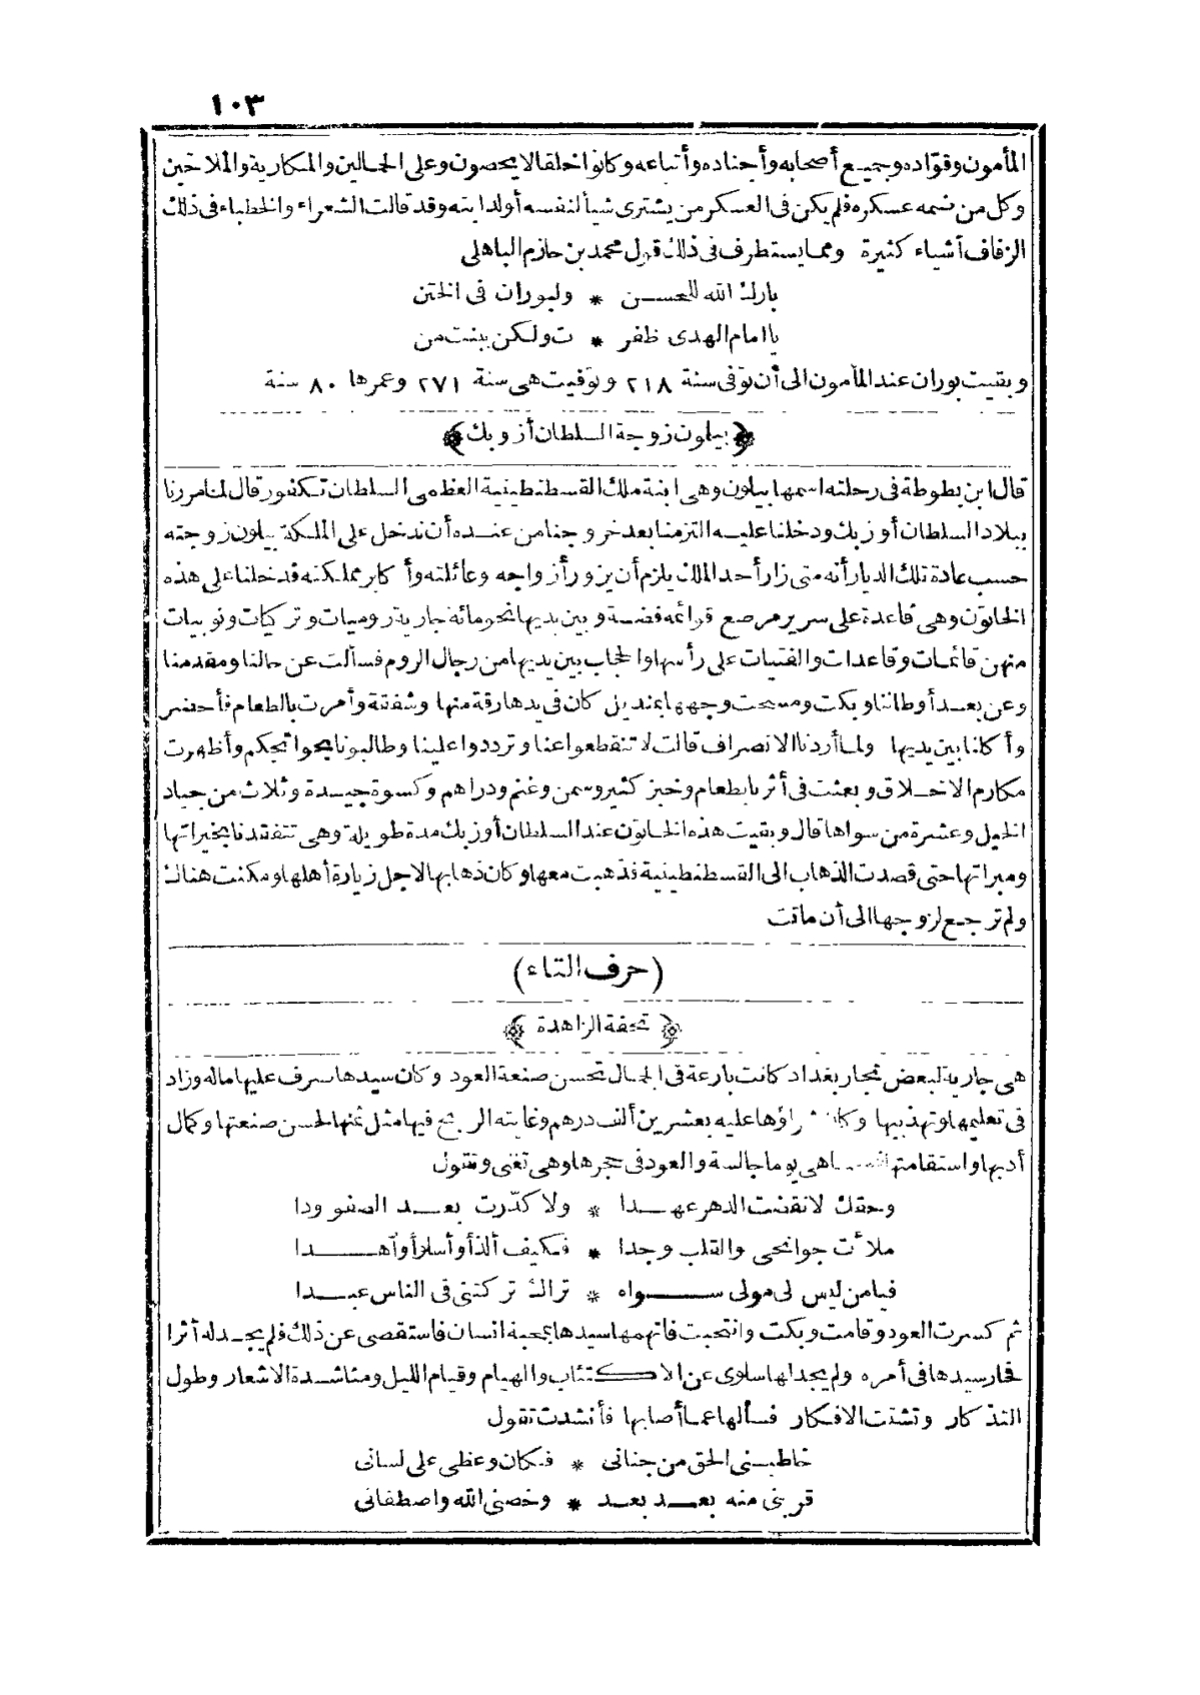 ١٠٣
المأمون وقوّاده وجميع أصحابه وأجناده وأتباعه وكانوا خلقا لا يحصون وعلى الجمالين والمكارية والملاحين
وكل من ضمه عسكره فلم يكن فى العسكر من يشترى شيأ لنفسه أولدابته وقد قالت الشعراء والخطباء فى ذلك
الزفاف أشياء كثيرة وممايستطرف فى ذلك قول محمد بن حازم الباهلى
بارك الله للحسن * ولبوران فى الختن
يا امام الهدى ظفر * ت ولكن ببنت من
وبقيت بوران عند المأمون الى أن توفى سنة ٢١٨ وتوفيت هى سنة ٢٧١ وعمرها ٨٠ سنة
﴿بيلون زوجة السلطان أزوبك﴾
قال ابن بطوطة فى رحلته اسمها بيلون وهى ابنة ملك القسطنطينية العظمى السلطان تكفور قال لما مررنا
ببلاد السلطان أوزبك ودخلنا عليه التزمنا بعد خروجنا من عنده أن ندخل على الملكة بيلون زوجته
حسب عادة تلك الديار أنه متى زار أحد الملك يلزم أن يزور أزواجه وعائلته وأكابر مملكته فدخلنا على هذه
الخاتون وهى قاعدة على سرير مرصع قوائمه فضة وبين يديها نحو مائة جارية روميات وتركيات ونوبيات
منهن قائمات وقاعدات والفتيات على رأسها والحجاب بين يديها من رجال الروم فسألت عن حالنا ومقدمنا
وعن بعد أوطاننا وبكت ومسحت وجهها بمنديل كان فى يدها رقة منها وشفقة وأمرت بالطعام فأحضر
وأكلنا بين يديها ولما أردنا الانصراف قالت لا تنقطعوا عنا وترددوا علينا وطالبونا بحوائجكم وأظهرت
مكارم الاخلاق وبعثت فى أثرنا بطعام وخبز كثير وسمن وغنم ودراهم وكسوة جيدة وثلاث من جياد
الخيل وعشرة من سواها قال وبقيت هذه الخاتون عند السلطان أوزبك مدة طويلة وهى تتفقدنا بخيراتها
ومبراتها حتى قصدت الذهاب الى القسطنطينية فذهبت معها وكان ذهابها لاجل زيارة أهلها ومكثت هناك
ولم ترجع لزوجها الى أن ماتت
(حرف التاء)
﴿تحفة الزاهدة﴾
هى جارية لبعض تجار بغداد كانت بارعة فى الجمال تحسن صنعة العود وكان سيدها صرف عليها ماله وزاد
فى تعليمها وتهذيبها وكان شراؤها عليه بعشرين ألف درهم وغايته الربح فيها مثل ثمنها لحسن صنعتها وكمال
أدبها واستقامتها هى يوما جالسة والعود فى حجرها وهى تغنى وتقول
وحقك لا نقضت الدهر عهدا * ولا كدّرت بعد الصفو ودا
ملأت جوانحى والقلب وجدا * فكيف ألذ أو أسلو أو أهدا
فيا من ليس لى مولى سواه * تراك تركتنى فى الناس عبدا
ثم كسرت العود وقامت وبكت وانتحبت فاتهمها سيدها بمحبة انسان فاستقصى عن ذلك فلم يجد له أثرا
فحار سيدها فى أمره ولم يجد لها سلوى عن الاكتئاب والهيام وقيام الليل ومناشدة الاشعار وطول
التذكار وتشتت الافكار فسألها عما أصابها فأنشدت تقول
خاطبنى الحق من جنانى * فكان وعظى على لسانى
قربنى منه بعد بعد * وخصنى الله واصطفانى